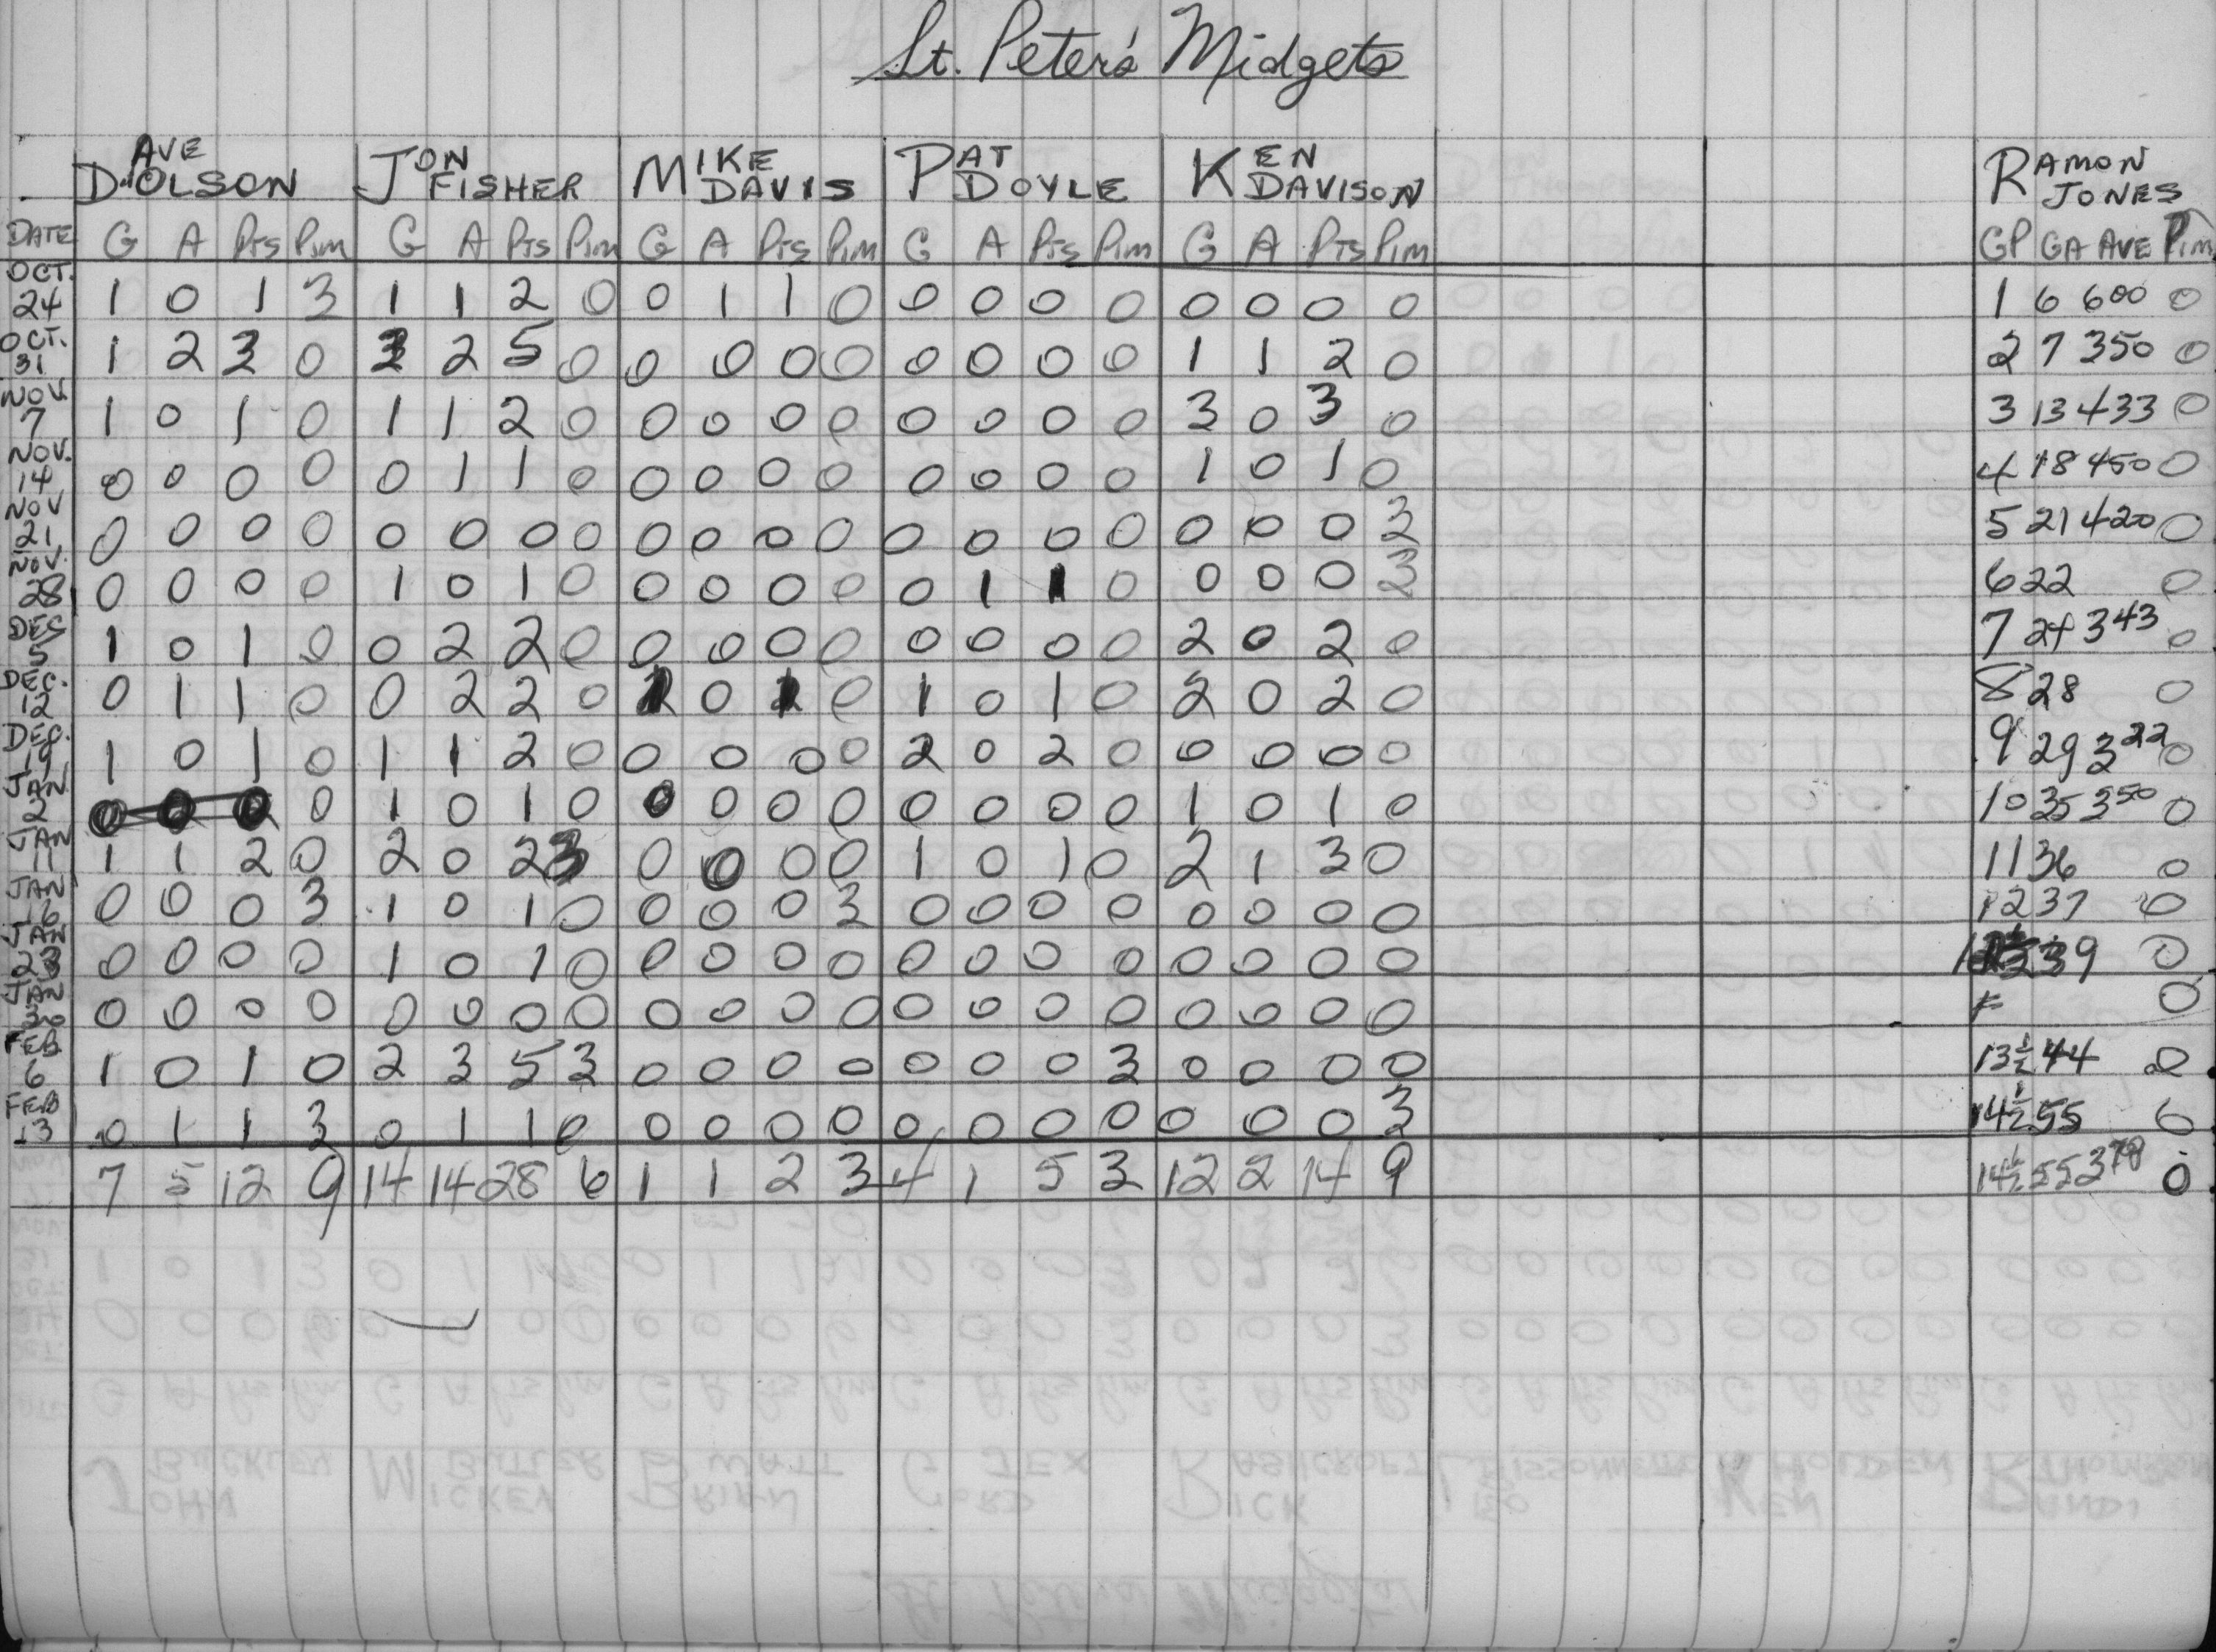 St. Peter's Midgets
DAVE OLSON JON FISHER MIKE DAVIS PAT DOYLE KEN DAVISON RAMON JONES
DATE G A Pts Pim G A Pts Pim G A Pts Pim G A Pts Pim G A Pts Pim GP GA AVE Pim
OCT. 24 1 0 1 3 1 1 2 0 0 1 1 0 0 0 0 0 0 0 0 0 1 6 600 0
OCT. 31 1 2 3 0 3 2 5 0 0 0 0 0 0 0 0 0 1 1 2 0 2 7 350 0
NOV. 7 1 0 1 0 1 1 2 0 0 0 0 0 0 0 0 0 3 0 3 0 3 13 433 0
NOV. 14 0 0 0 0 0 1 1 0 0 0 0 0 0 0 0 0 1 0 1 0 4 18 450 0
NOV 21 0 0 0 0 0 0 0 0 0 0 0 0 0 0 0 0 0 0 0 3 5 21 420 0
NOV. 28 0 0 0 0 1 0 1 0 0 0 0 0 0 1 1 0 0 0 0 3 6 22 0
DEC 5 1 0 1 0 0 2 2 0 0 0 0 0 0 0 0 0 2 0 2 0 7 24 343 0
DEC. 12 0 1 1 0 0 2 2 0 1 0 1 0 1 0 1 0 2 0 2 0 8 28 0
DEC. 19 1 0 1 0 1 1 2 0 0 0 0 0 2 0 2 0 0 0 0 0 9 29 322 0
JAN 2 0 0 0 0 1 0 1 0 0 0 0 0 0 0 0 0 1 0 1 0 10 35 350 0
JAN 11 1 1 2 0 2 0 2 3 0 0 0 0 1 0 1 0 2 1 3 0 11 36 0
JAN 16 0 0 0 3 1 0 1 0 0 0 0 3 0 0 0 0 0 0 0 0 12 37 0
JAN 23 0 0 0 0 1 0 1 0 0 0 0 0 0 0 0 0 0 0 0 0 39 0
JAN 30 0 0 0 0 0 0 0 0 0 0 0 0 0 0 0 0 0 0 0 0 0
FEB 6 1 0 1 0 2 3 5 3 0 0 0 0 0 0 0 3 0 0 0 0 13½ 44 0
FEB 13 0 1 1 3 0 1 1 0 0 0 0 0 0 0 0 0 0 0 0 3 14½ 55 0
7 5 12 9 14 14 28 6 1 1 2 3 4 1 5 3 12 2 14 9 14½ 55 379 0